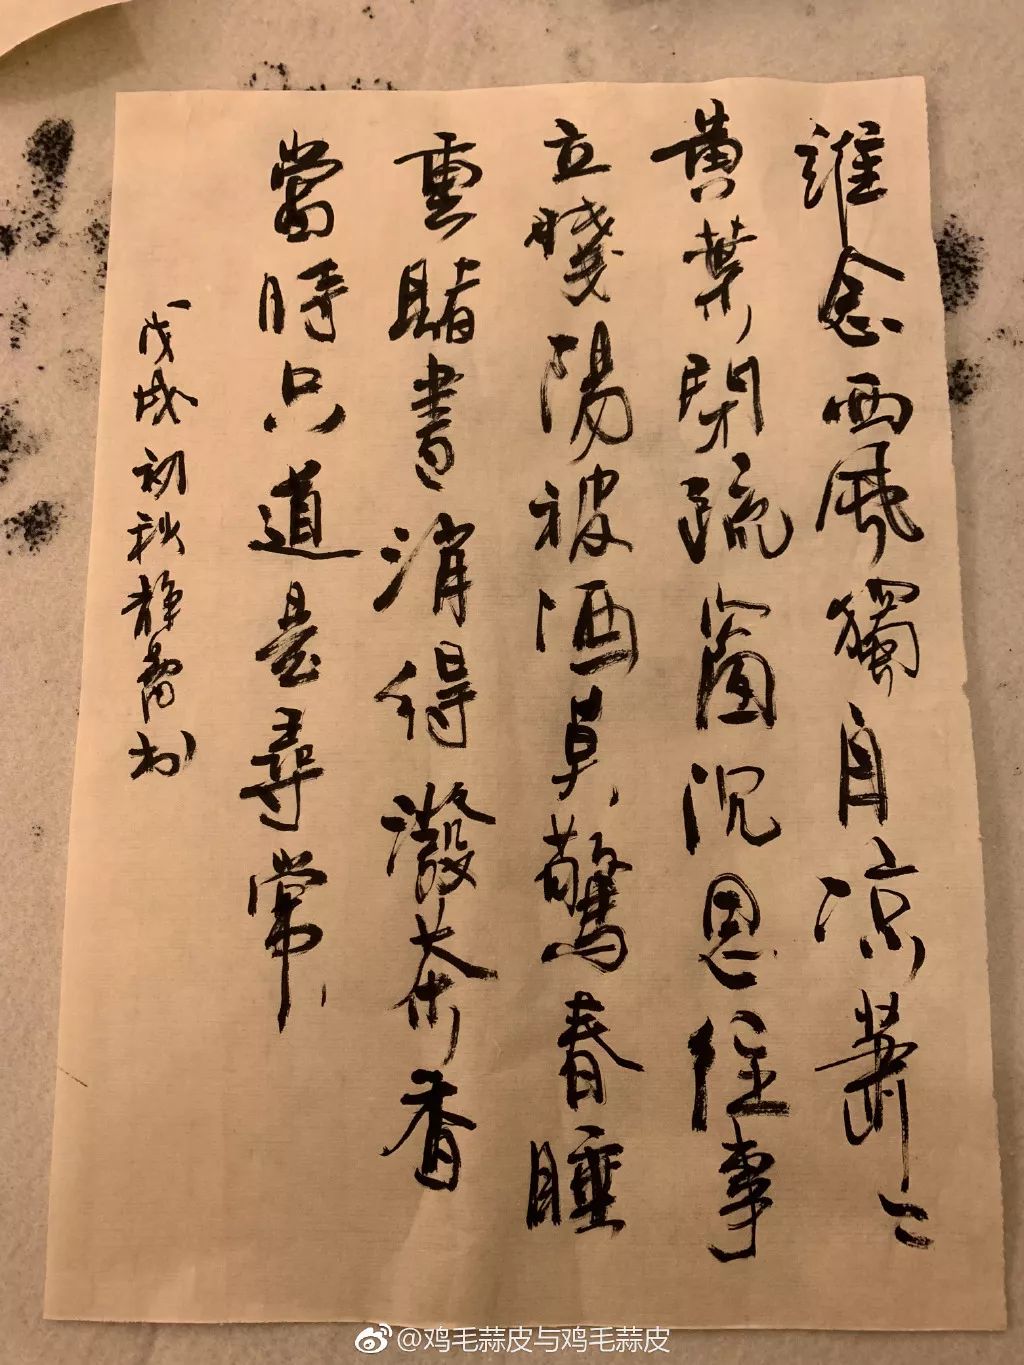 誰念西風獨自凉蕭〻
黄葉閉疏窗沉思往事
立殘陽被酒莫驚春睡
重賭書消得潑茶香
當時只道是尋常
戊戌初秋静蕾
@鸡毛蒜皮与鸡毛蒜皮